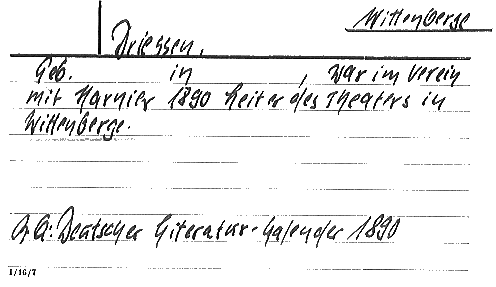 Wittenberge
Driessen.
Geb. in , war im Verein
mit Harnier 1890 Leiter des Theaters in
Wittenberge.
Qu: Deutscher Literatur-Kalender 1890
1/16/7